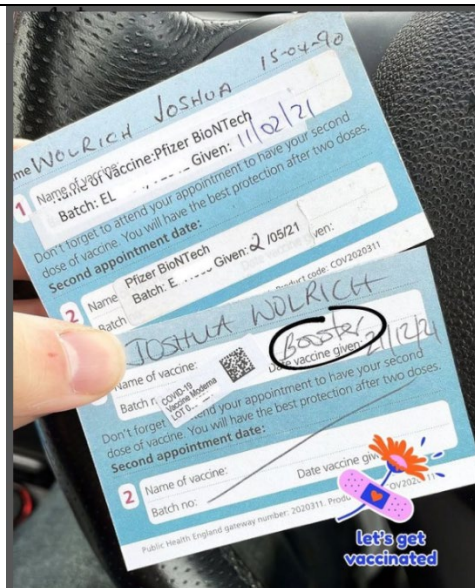 15-04-90
me WOLRICH JOSHUA
1 Name of vaccine:
Name of Vaccine: Pfizer BioNTech
Batch: EL Given: 11/02/21
Don't forget to attend your appointment to have your second
dose of vaccine. You will have the best protection after two doses.
Second appointment date:
Pfizer BioNTech
2 Name
Batch: E Given: 2/05/21
Batch
Product code: COV2020311
JOSHUA WOLRICH
Booster
Name of vaccine:
Date vaccine given: 21/12/21
Batch n
COVID-19
Vaccine Moderna
LOT 0
Don't forget end your appointment to have your second
dose of vaccine. You will have the best protection after two doses.
Second appointment date:
2 Name of vaccine:
Batch no:
Date vaccine giv
Public Health England gateway number: 2020311. Produ OV2020 11
let's get
vaccinated